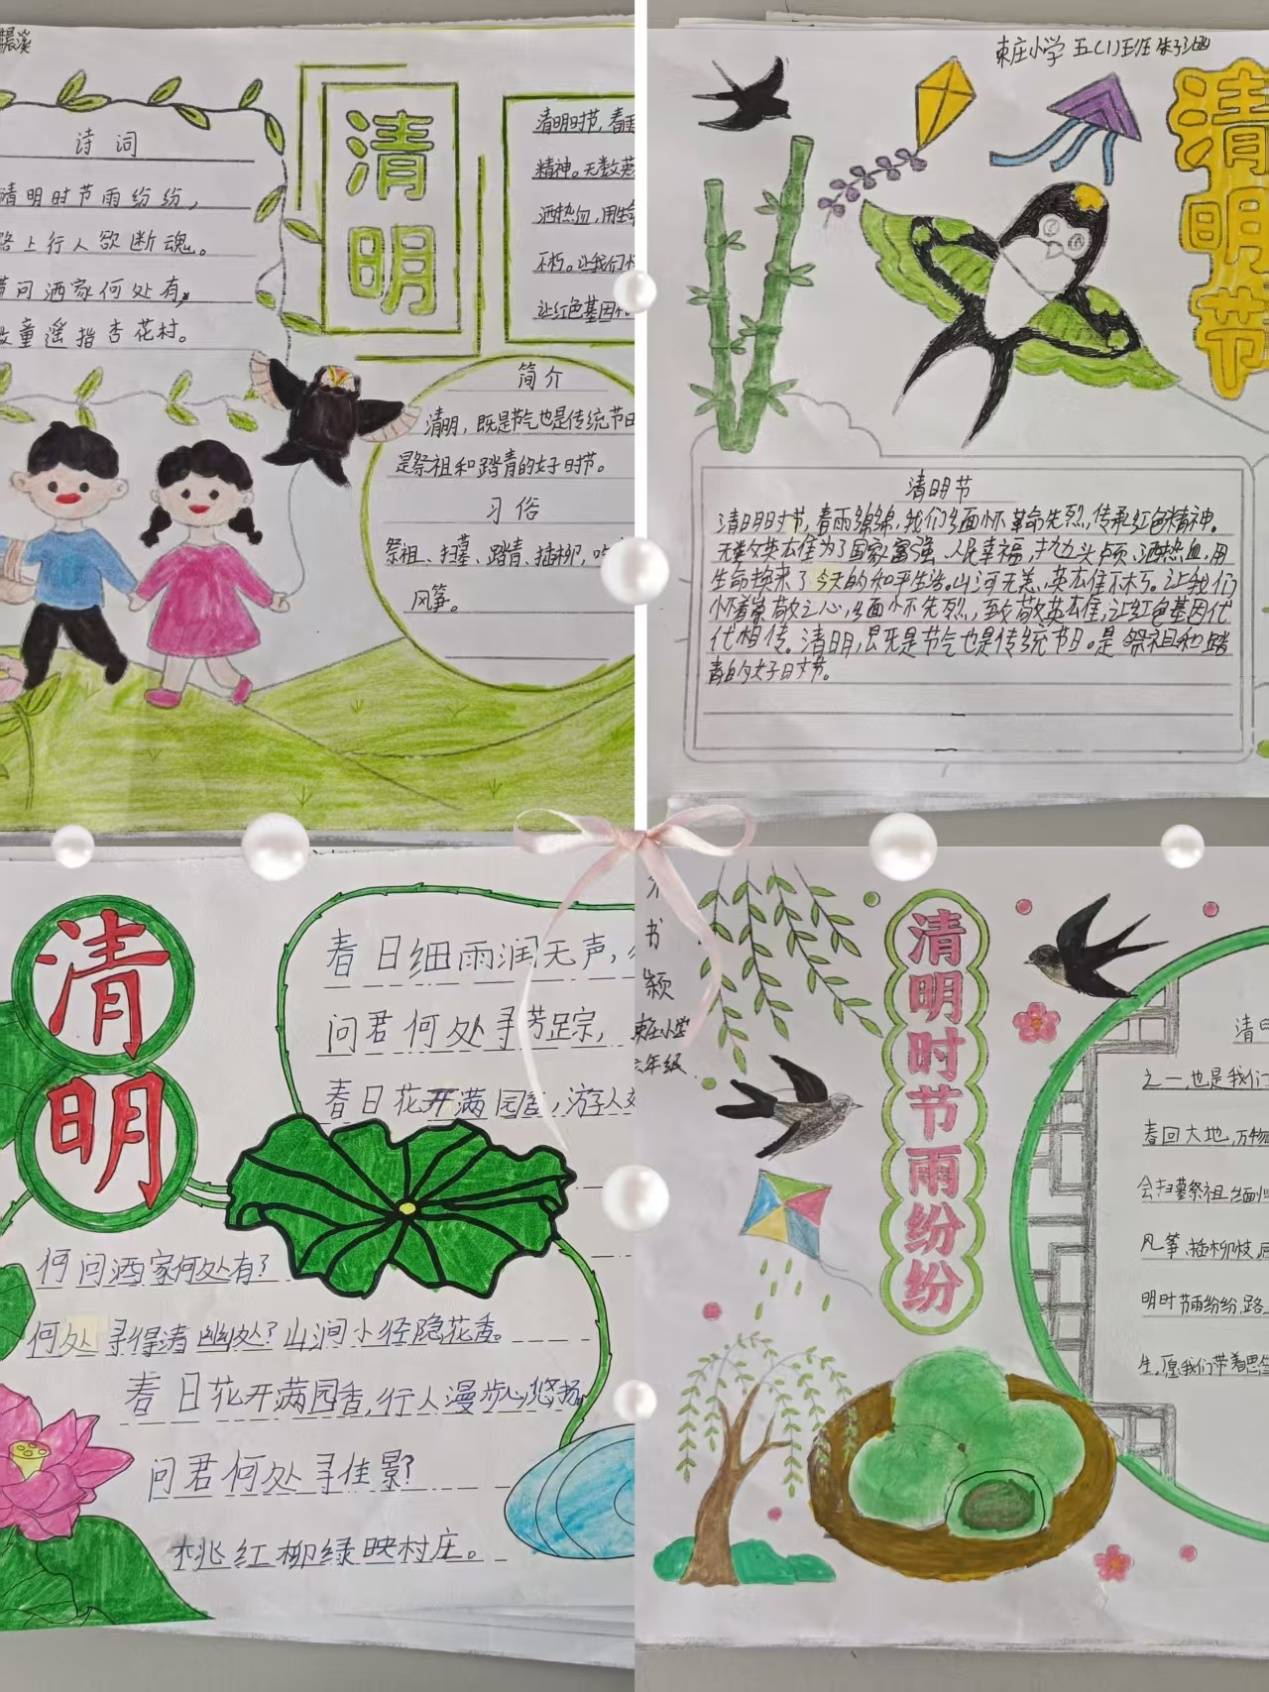 诗词
清明时节雨纷纷,
路上行人欲断魂。
问酒家何处有,
童遥指杏花村。
清明
清明时节,春
精神。无数英
洒热血,用生
不朽。让我们
让红色基因代
简介
清明,既是节气也是传统节日
是祭祖和踏青的好时节。
习俗
祭祖、扫墓、踏青、插柳,
风筝。
東庄小学 五(1)班
清明节
清明节
清明时节,春雨绵绵,我们缅怀革命先烈,传承红色精神。
无数英雄为了国家富强、人民幸福,抛头颅、洒热血,用
生命换来了今天的和平生活。山河无恙,英雄不朽。让我们
怀着崇敬之心,缅怀先烈,致敬英雄,让红色基因代
代相传。清明,既是节气也是传统节日。是祭祖和踏
青的好时节。
清明
春日细雨润无声,
问君何处寻芳踪,
春日花开满园香,游人
何问酒家何处有?
何处寻得清幽处?山涧小径隐花香。
春日花开满园香,行人漫步心悠扬
问君何处寻佳景?
桃红柳绿映村庄。
书
颖
東庄小学
六年级
清明时节雨纷纷
清明
之一,也是我们
春回大地,万物
会扫墓祭祖,缅怀
风筝、插柳枝,
明时节雨纷纷,路
生,愿我们带着思